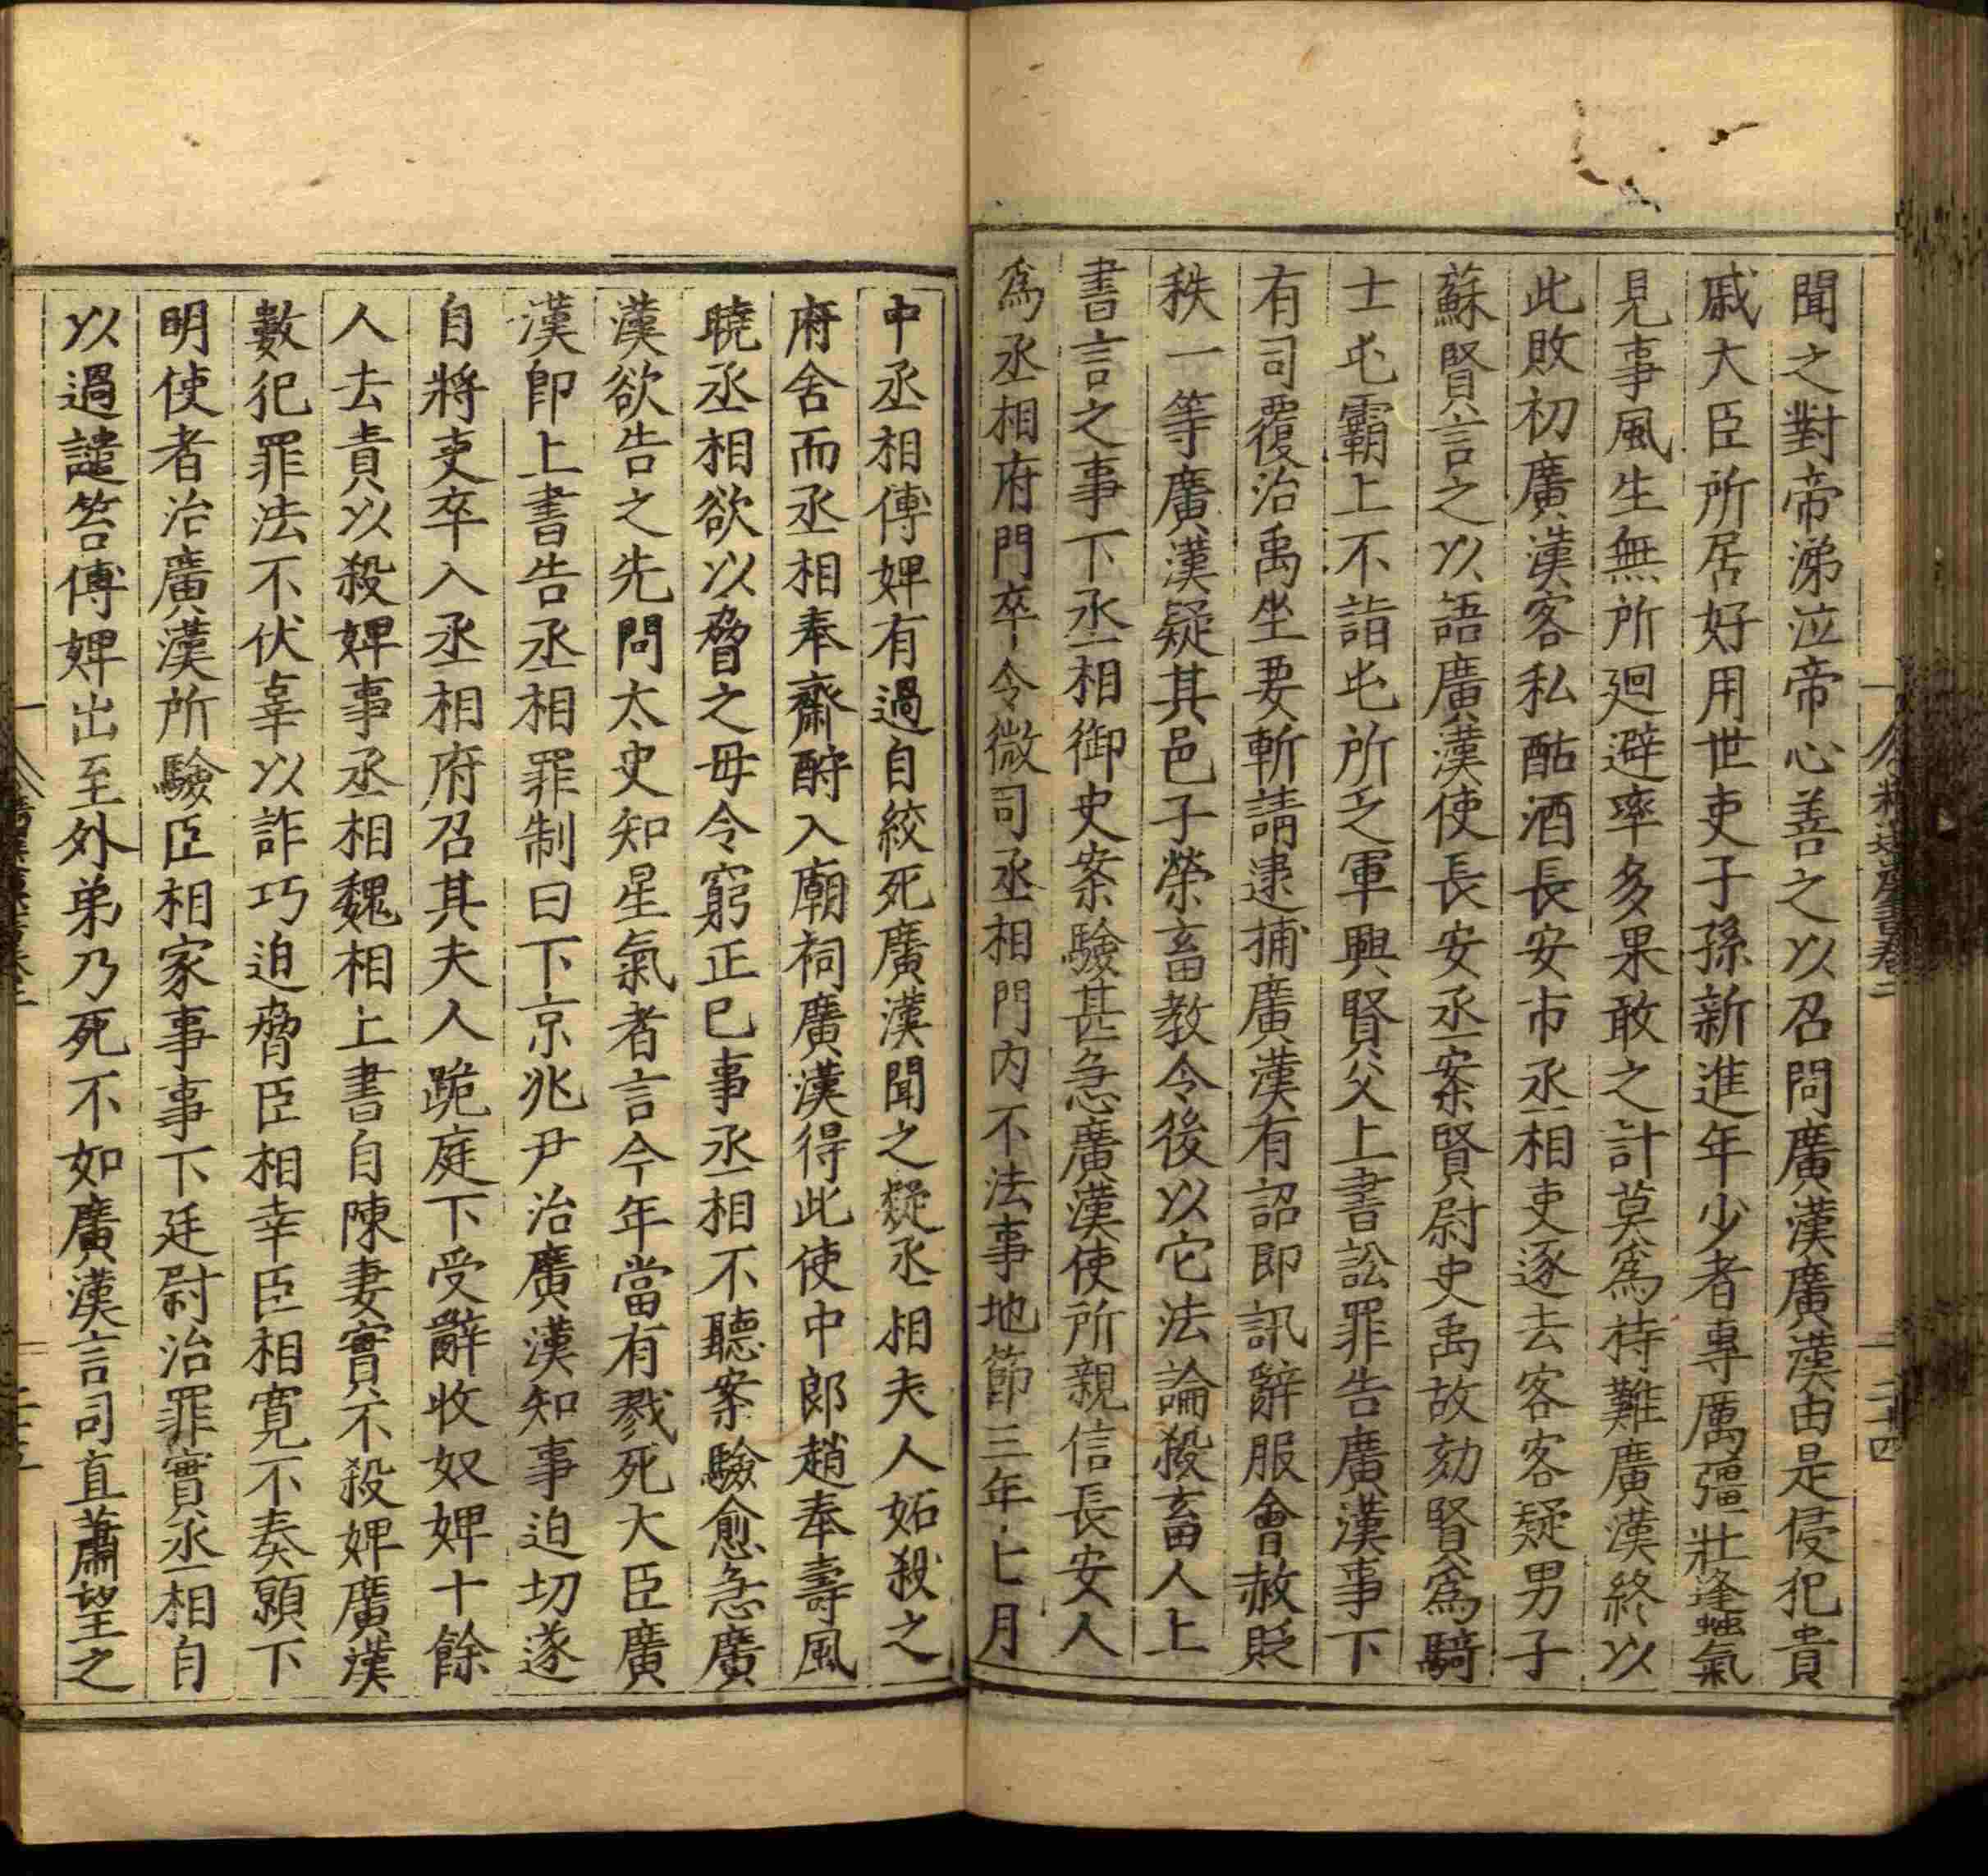 聞之對帝涕泣帝心善之以召問廣漢廣漢由是侵犯貴
戚大臣所居好用世吏子孫新進年少者專厲彊壯蠭氣
見事風生無所廻避率多果敢之計莫爲持難廣漢終以
此敗初廣漢客私酤酒長安市丞相吏逐去客客疑男子
蘇賢言之以語廣漢使長安丞案賢尉史禹故劾賢爲騎
士屯霸上不詣屯所乏軍興賢父上書訟罪告廣漢事下
有司覆治禹坐要斬請逮捕廣漢有詔即訊辭服會赦貶
秩一等廣漢疑其邑子榮畜教令後以它法論殺畜人上
書言之事下丞相御史案驗甚急廣漢使所親信長安人
爲丞相府門卒令微司丞相門內不法事地節三年七月
中丞相傅婢有過自絞死廣漢聞之疑丞相夫人妬殺之
府舍而丞相奉齋酎入廟祠廣漢得此使中郎趙奉壽風
曉丞相欲以脅之毋令窮正己事丞相不聽案驗愈急廣
漢欲告之先問太史知星氣者言今年當有戮死大臣廣
漢即上書告丞相罪制曰下京兆尹治廣漢知事迫切遂
自將吏卒入丞相府召其夫人跪庭下受辭收奴婢十餘
人去責以殺婢事丞相魏相上書自陳妻實不殺婢廣漢
數犯罪法不伏辜以詐巧迫脅臣相幸臣相寬不奏願下
明使者治廣漢所驗臣相家事事下廷尉治罪實丞相自
以過譴笞傅婢出至外弟乃死不如廣漢言司直蕭望之